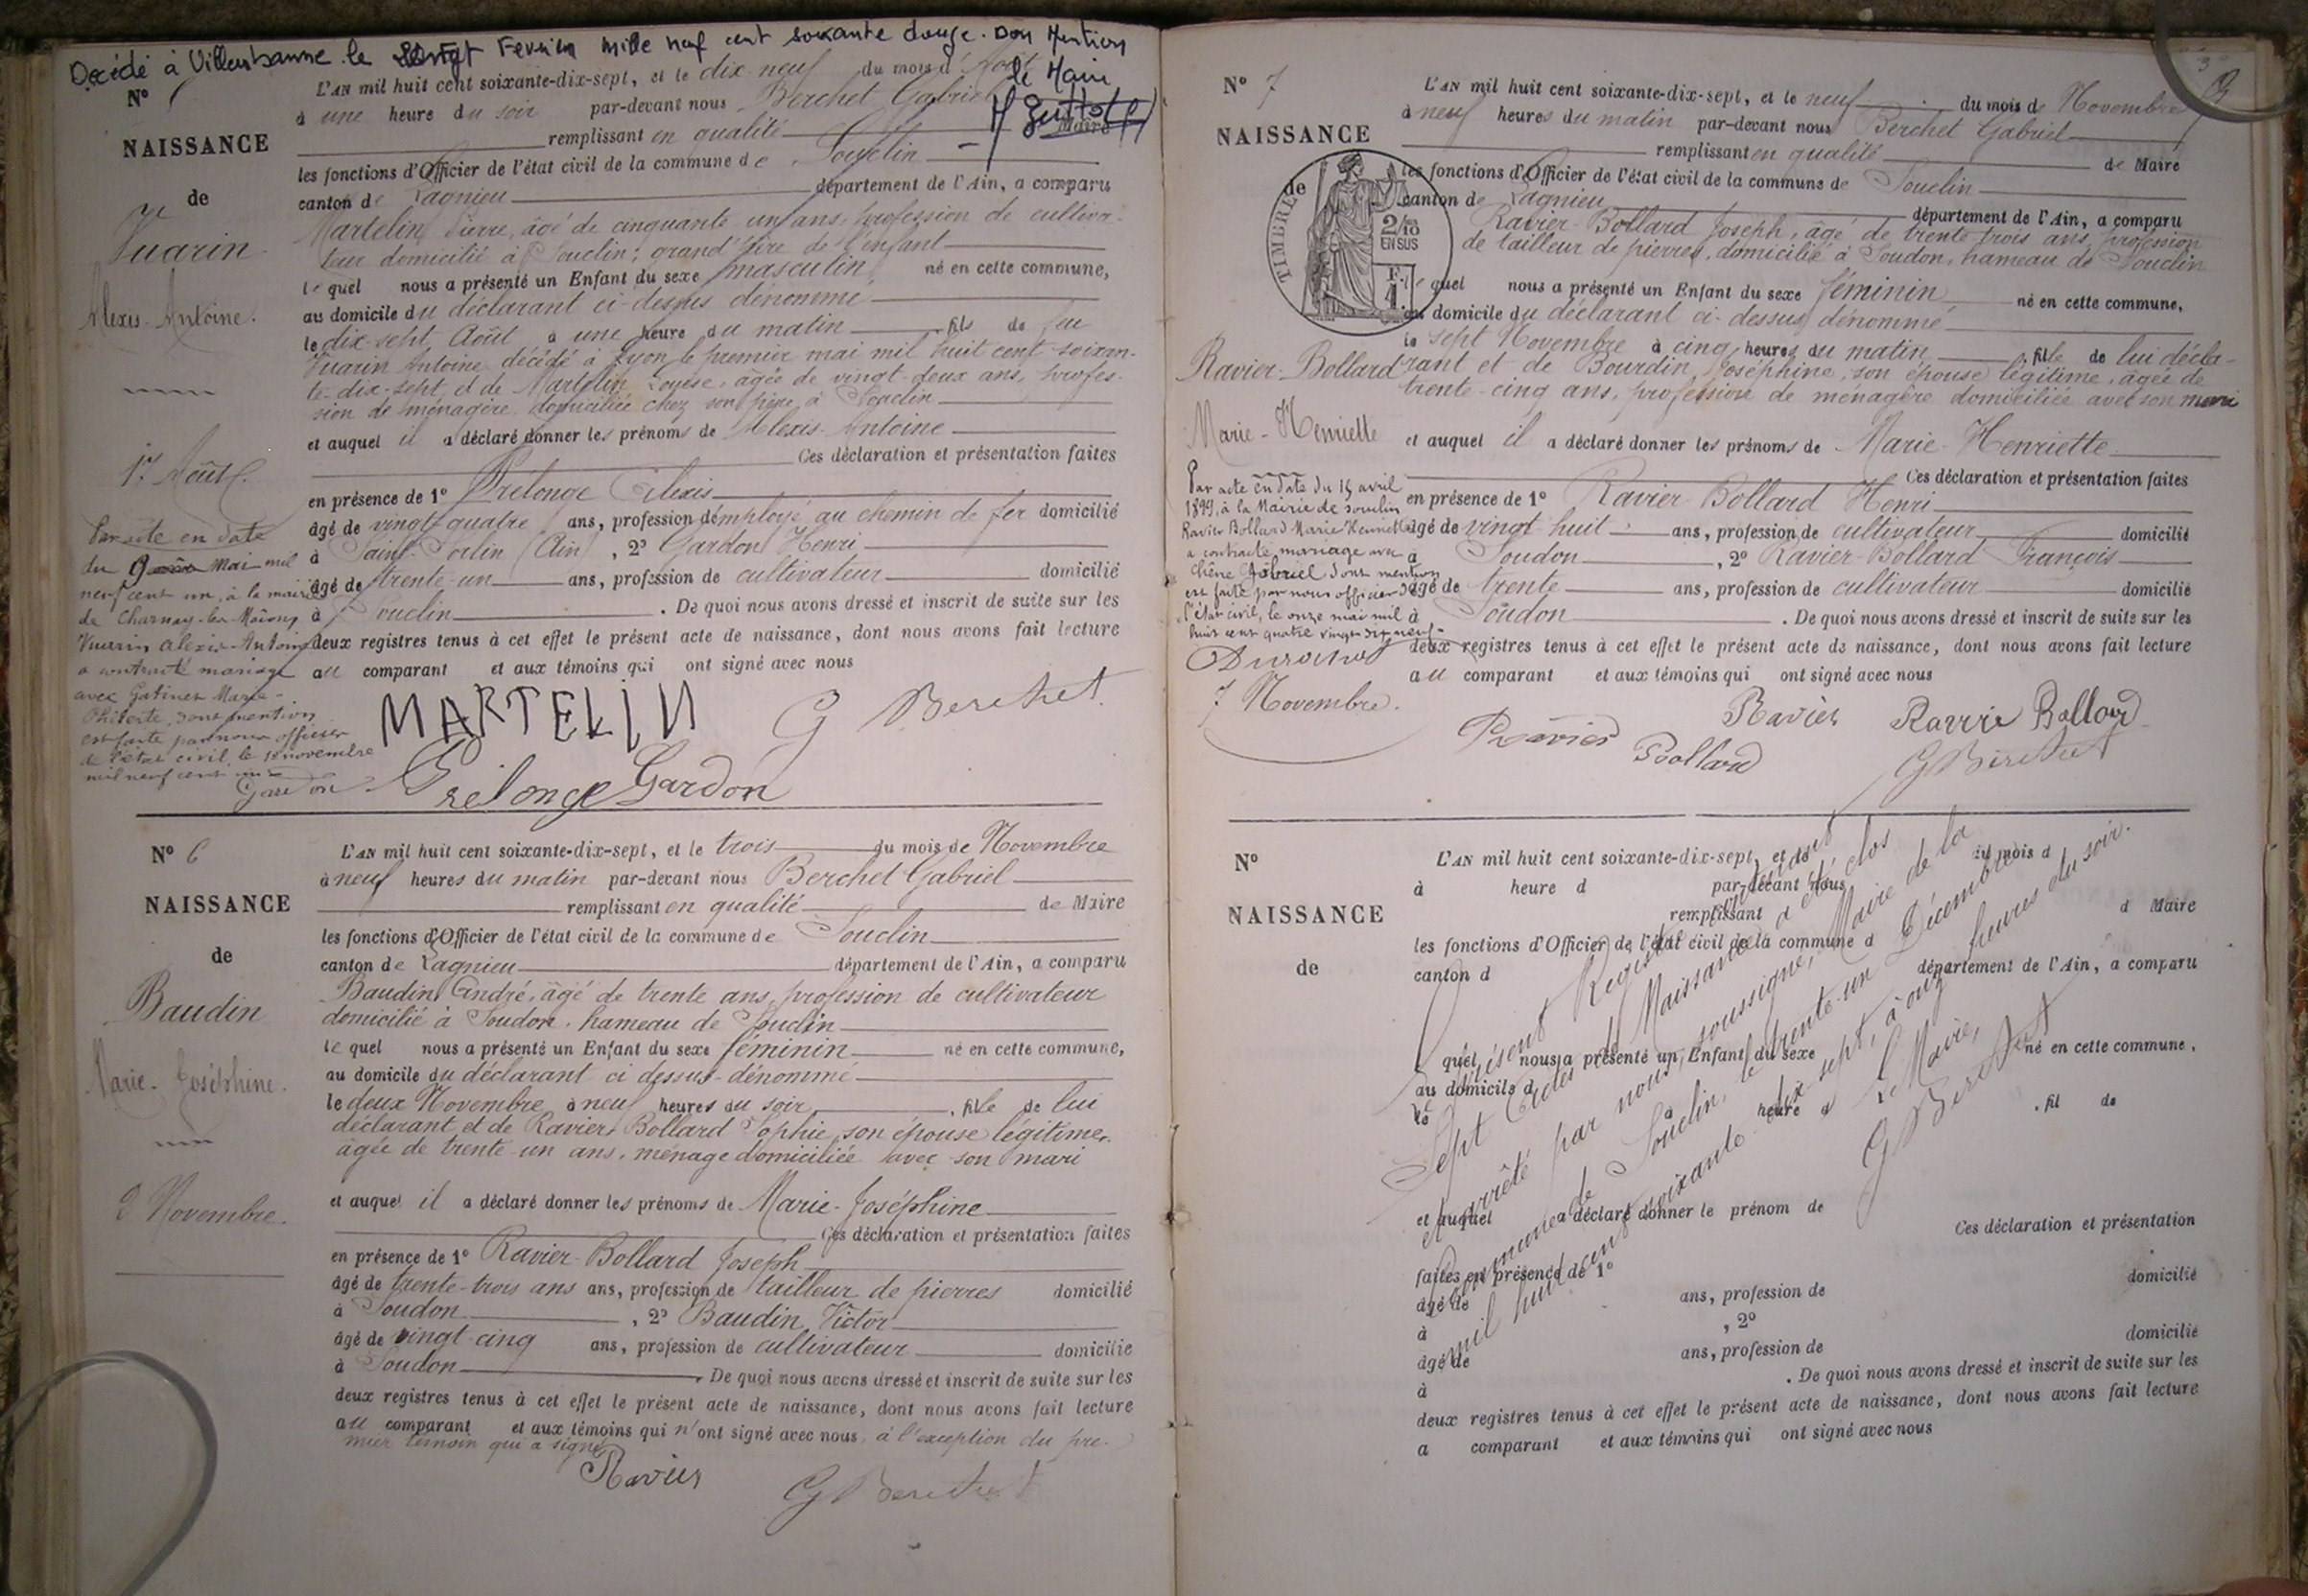 Decédé à Villeurbanne le vingt Février mille neuf cent soixante douze. Dont Mention
le Maire
L'AN mil huit cent soixante-dix-sept, et le dix-neuf du mois d'Août
à une heure du soir par-devant nous Berchet Gabriel
remplissant en qualité Maire
les fonctions d'Officier de l'état civil de la commune de Souclin
canton de Lagnieu département de l'Ain, a comparu
Martelin Pierre, âgé de cinquante un ans, profession de cultiva-
teur domicilié à Souclin, grand'père de l'enfant
le quel nous a présenté un Enfant du sexe masculin né en cette commune,
au domicile du déclarant ci-dessus dénommé
le dix-sept Août à une heure du matin, fils de feu
Vuarin Antoine décédé à Lyon le premier mai mil huit cent soixan-
te-dix-sept et de Martelin Louise, âgée de vingt-deux ans, profes-
sion de ménagère domiciliée chez son père à Souclin
et auquel il a déclaré donner les prénoms de Alexis Antoine
Ces déclaration et présentation faites
en présence de 1° Prelonge Alexis
âgé de vingt-quatre ans, profession d'employé au chemin de fer domicilié
à Saint-Sorlin (Ain), 2° Gardon Henri
âgé de trente-un ans, profession de cultivateur domicilié
à Souclin. De quoi nous avons dressé et inscrit de suite sur les
deux registres tenus à cet effet le présent acte de naissance, dont nous avons fait lecture
au comparant et aux témoins qui ont signé avec nous
MARTELIN G Berchet
Prelonge Gardon
N°
NAISSANCE
de
Vuarin
Alexis-Antoine.
17 Août
Par acte en date
du 9 Mai mil
neuf cent un, à la mairie
de Charnay-les-Mâcon
Vuarin Alexis-Antoine
a contracté mariage
avec Gatinet Marie-
dont mention
est faite par nous officier
de l'état civil, le novembre
mil neuf cent un
Gardon
N° 6
NAISSANCE
de
Baudin
Marie-Joséphine.
2 Novembre.
L'AN mil huit cent soixante-dix-sept, et le trois du mois de Novembre
à neuf heures du matin par-devant nous Berchet Gabriel
remplissant en qualité de Maire
les fonctions d'Officier de l'état civil de la commune de Souclin
canton de Lagnieu département de l'Ain, a comparu
Baudin André, âgé de trente ans, profession de cultivateur
domicilié à Soudon, hameau de Souclin
le quel nous a présenté un Enfant du sexe féminin né en cette commune,
au domicile du déclarant ci dessus-dénommé
le deux Novembre à neuf heures du soir, fille de lui
déclarant et de Ravier Bollard Sophie, son épouse légitime,
âgée de trente-un ans, ménage domiciliée avec son mari
et auquel il a déclaré donner les prénoms de Marie-Joséphine
Ces déclaration et présentation faites
en présence de 1° Ravier-Bollard Joseph
âgé de trente-trois ans ans, profession de tailleur de pierres domicilié
à Soudon, 2° Baudin Victor
âgé de vingt-cinq ans, profession de cultivateur domicilié
à Soudon. De quoi nous avons dressé et inscrit de suite sur les
deux registres tenus à cet effet le présent acte de naissance, dont nous avons fait lecture
au comparant et aux témoins qui n'ont signé avec nous, à l'exception du pre-
mier témoin qui a signé
Ravier G Berchet
N° 7
NAISSANCE
de
TIMBRE
2/10
EN SUS
Ravier-Bollard
Marie-Henriette
Par acte en date du 15 avril
1899, à la Mairie de Souclin
Ravier Bollard Marie Henriette
a contracté mariage avec
Chêne Gabriel dont mention
est faite par nous officier de
l'état civil, le onze mai mil
huit cent quatre vingt-dix-neuf
7 Novembre.
L'AN mil huit cent soixante-dix-sept, et le neuf du mois de Novembre
à neuf heures du matin par-devant nous Berchet Gabriel
remplissant en qualité de Maire
les fonctions d'Officier de l'état civil de la commune de Souclin
canton de Lagnieu département de l'Ain, a comparu
Ravier-Bollard Joseph, âgé de trente trois ans, profession
de tailleur de pierres, domicilié à Soudon, hameau de Souclin
le quel nous a présenté un Enfant du sexe féminin né en cette commune,
au domicile du déclarant ci-dessus dénommé
le sept Novembre à cinq heures du matin, fille de lui décla-
rant et de Bourdin Joséphine, son épouse légitime, âgée de
trente-cinq ans, profession de ménagère domiciliée avec son mari
et auquel il a déclaré donner les prénoms de Marie-Henriette
Ces déclaration et présentation faites
en présence de 1° Ravier-Bollard Henri
âgé de vingt huit ans, profession de cultivateur domicilié
à Soudon, 2° Ravier-Bollard François
âgé de trente ans, profession de cultivateur domicilié
à Soudon. De quoi nous avons dressé et inscrit de suite sur les
deux registres tenus à cet effet le présent acte de naissance, dont nous avons fait lecture
au comparant et aux témoins qui ont signé avec nous
Ravier Bollard Ravier Bollard
G Berchet
N°
NAISSANCE
de
L'AN mil huit cent soixante-dix-sept, et le du mois d
à heure d par-devant nous
remplissant d Maire
les fonctions d'Officier de l'état civil de la commune d
canton d département de l'Ain, a comparu
quel nous a présenté un Enfant du sexe né en cette commune,
au domicile d
le à heure d, fil de
et auquel a déclaré donner le prénom de
Ces déclaration et présentation
faites en présence de 1°
âgé de ans, profession de domicilié
à, 2°
âgé de ans, profession de domicilié
à. De quoi nous avons dressé et inscrit de suite sur les
deux registres tenus à cet effet le présent acte de naissance, dont nous avons fait lecture
a comparant et aux témoins qui ont signé avec nous
Le présent Registre contenant
Sept Actes de Naissance a été clos
et arrêté par nous, soussigné, Maire de la
Commune de Souclin, le trente-un Décembre
mil huit cent soixante-dix-sept, à onze heures du soir.
Le Maire,
G Berchet